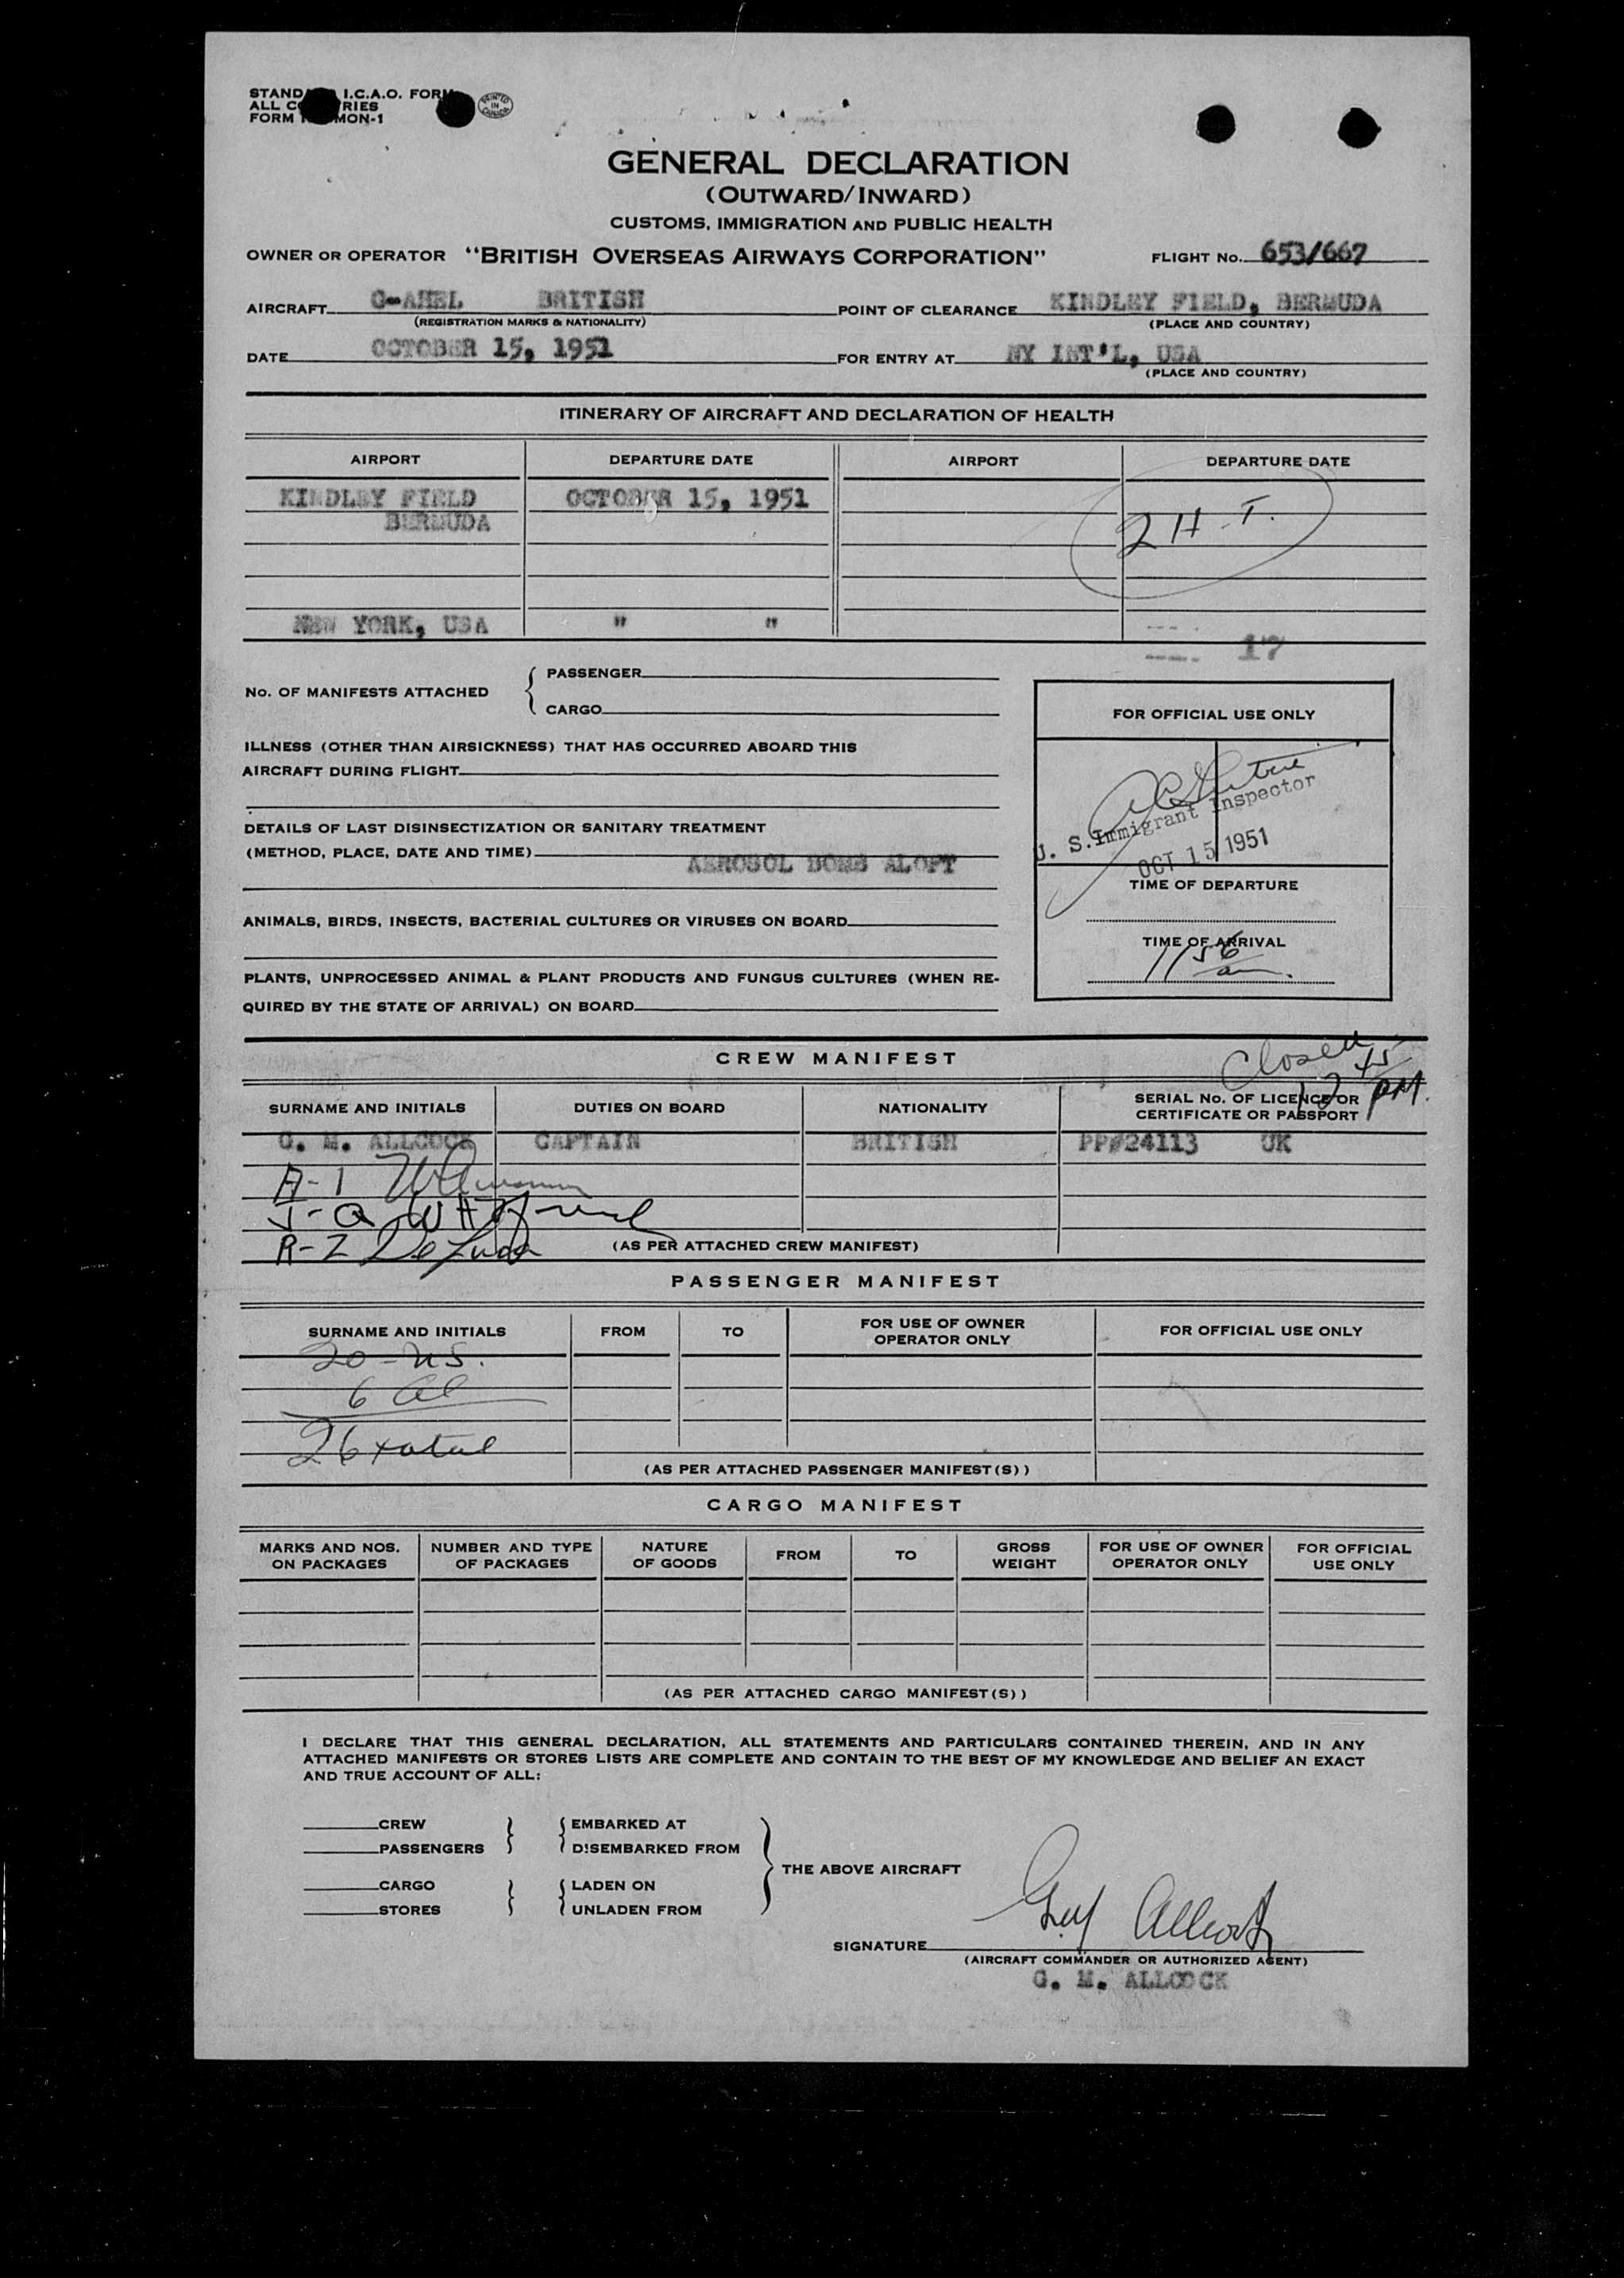 I.C.A.O. FORM
ALL
FORM MON-1
PRINTED IN CANADA
GENERAL DECLARATION
(OUTWARD/INWARD)
CUSTOMS, IMMIGRATION AND PUBLIC HEALTH
OWNER OR OPERATOR "BRITISH OVERSEAS AIRWAYS CORPORATION" FLIGHT No. 653/667
AIRCRAFT G-AHEL BRITISH POINT OF CLEARANCE KINDLEY FIELD, BERMUDA
(REGISTRATION MARKS & NATIONALITY) (PLACE AND COUNTRY)
DATE OCTOBER 15, 1951 FOR ENTRY AT NY INT'L, USA
(PLACE AND COUNTRY)
ITINERARY OF AIRCRAFT AND DECLARATION OF HEALTH
AIRPORT DEPARTURE DATE AIRPORT DEPARTURE DATE
KINDLEY FIELD OCTOBER 15, 1951
BERMUDA
2 H-T.
NEW YORK, USA " "
17
No. OF MANIFESTS ATTACHED { PASSENGER
CARGO
FOR OFFICIAL USE ONLY
ILLNESS (OTHER THAN AIRSICKNESS) THAT HAS OCCURRED ABOARD THIS
AIRCRAFT DURING FLIGHT
U. S. Immigrant Inspector
OCT 15 1951
DETAILS OF LAST DISINSECTIZATION OR SANITARY TREATMENT
(METHOD, PLACE, DATE AND TIME) AEROSOL BOMB ALOFT
TIME OF DEPARTURE
ANIMALS, BIRDS, INSECTS, BACTERIAL CULTURES OR VIRUSES ON BOARD
TIME OF ARRIVAL
1156 am.
PLANTS, UNPROCESSED ANIMAL & PLANT PRODUCTS AND FUNGUS CULTURES (WHEN RE-
QUIRED BY THE STATE OF ARRIVAL) ON BOARD
CREW MANIFEST
Closed 12 45 PM.
SURNAME AND INITIALS DUTIES ON BOARD NATIONALITY SERIAL No. OF LICENCE OR CERTIFICATE OR PASSPORT
G. M. ALLCOCK CAPTAIN BRITISH PP#24113 UK
A-I
J-Q
R-Z DeLuca
(AS PER ATTACHED CREW MANIFEST)
PASSENGER MANIFEST
SURNAME AND INITIALS FROM TO FOR USE OF OWNER OPERATOR ONLY FOR OFFICIAL USE ONLY
20-US.
6 al
26 total
(AS PER ATTACHED PASSENGER MANIFEST(S))
CARGO MANIFEST
MARKS AND NOS. ON PACKAGES NUMBER AND TYPE OF PACKAGES NATURE OF GOODS FROM TO GROSS WEIGHT FOR USE OF OWNER OPERATOR ONLY FOR OFFICIAL USE ONLY
(AS PER ATTACHED CARGO MANIFEST(S))
I DECLARE THAT THIS GENERAL DECLARATION, ALL STATEMENTS AND PARTICULARS CONTAINED THEREIN, AND IN ANY
ATTACHED MANIFESTS OR STORES LISTS ARE COMPLETE AND CONTAIN TO THE BEST OF MY KNOWLEDGE AND BELIEF AN EXACT
AND TRUE ACCOUNT OF ALL:
CREW EMBARKED AT
PASSENGERS DISEMBARKED FROM
THE ABOVE AIRCRAFT
CARGO LADEN ON
STORES UNLADEN FROM
SIGNATURE Guy Allcock
(AIRCRAFT COMMANDER OR AUTHORIZED AGENT)
G. M. ALLCOCK